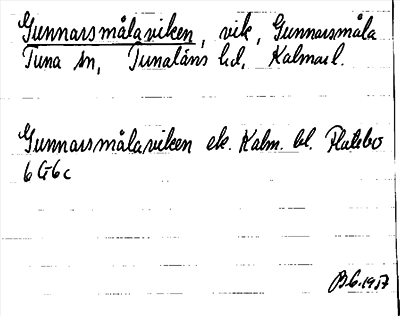 Gunnarsmålaviken, vik, Gunnarsmåla
Tuna sn, Tunaläns hd, Kalmar l.
Gunnarsmålaviken ek. Kalm. bl. Flatebo
6 G 6 c
1957